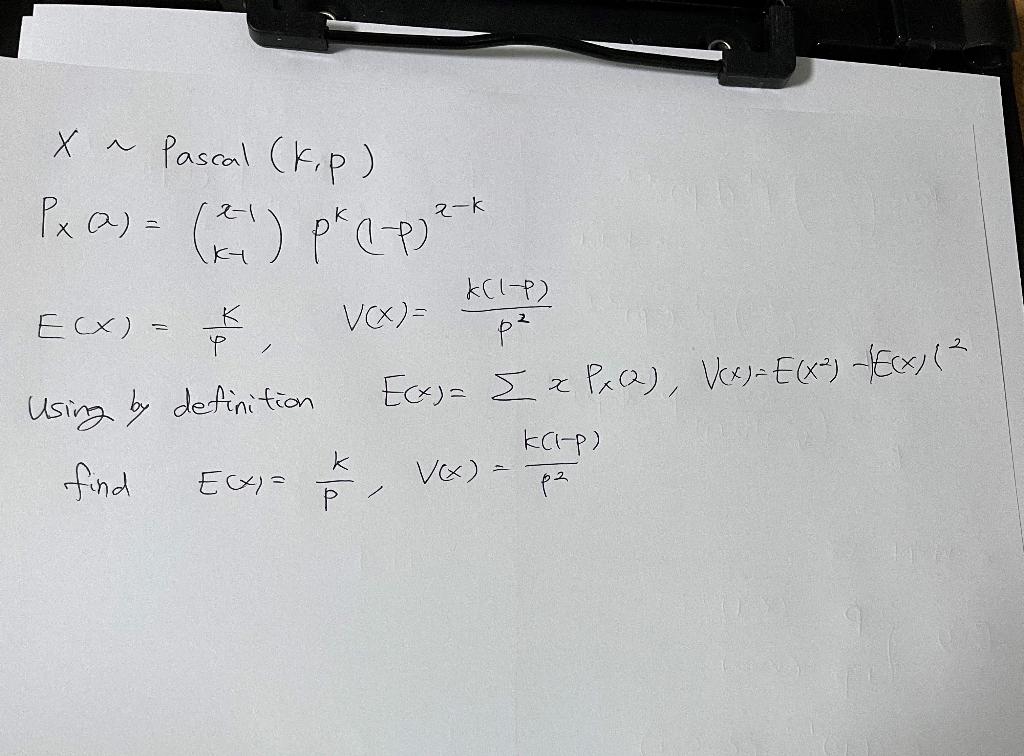 X ~ Pascal (k,p)
Px(x) = (x-1 k-1) p^k (1-p)^x-k
E(X) = k/p, V(X) = k(1-p)/p^2
Using by definition E(X) = Σ x Px(x), V(X) = E(X^2) - {E(X)}^2
find E(X) = k/p, V(X) = k(1-p)/p^2